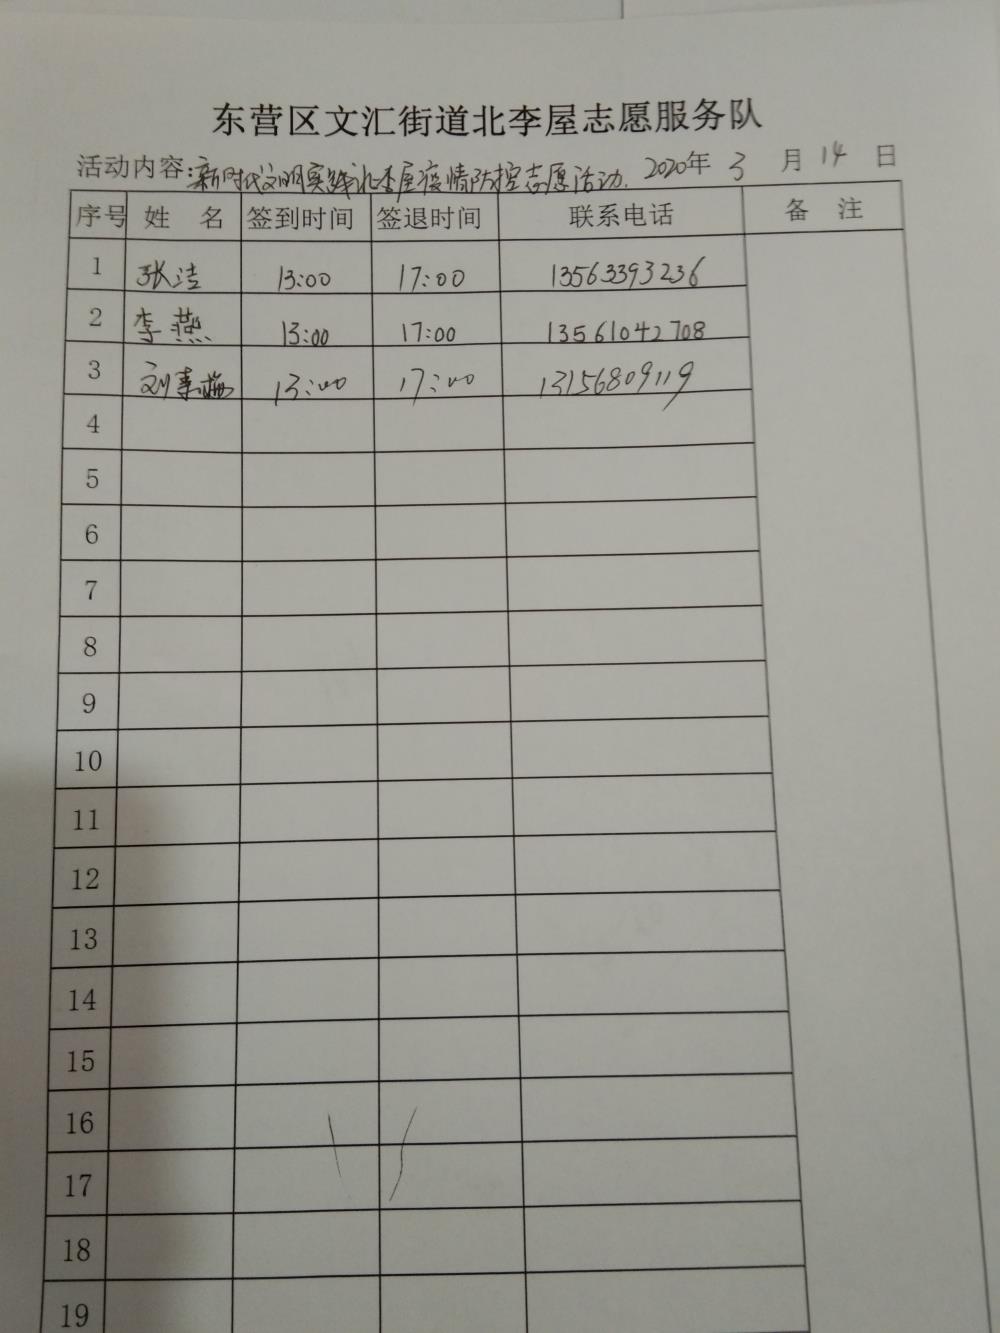 东营区文汇街道北李屋志愿服务队
活动内容:新时代文明实践北李屋疫情防控志愿活动. 2020年 3 月 14 日
序号 姓 名 签到时间 签退时间 联系电话 备 注
1 张洁 13:00 17:00 13563393236
2 李燕 13:00 17:00 13561042708
3 刘素梅 13:00 17:00 13156809119
4
5
6
7
8
9
10
11
12
13
14
15
16
17
18
19